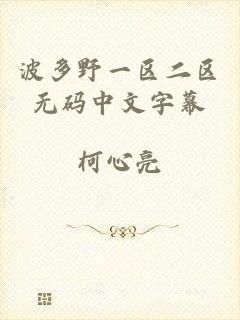 波多野一区二区
无码中文字幕
柯心亮